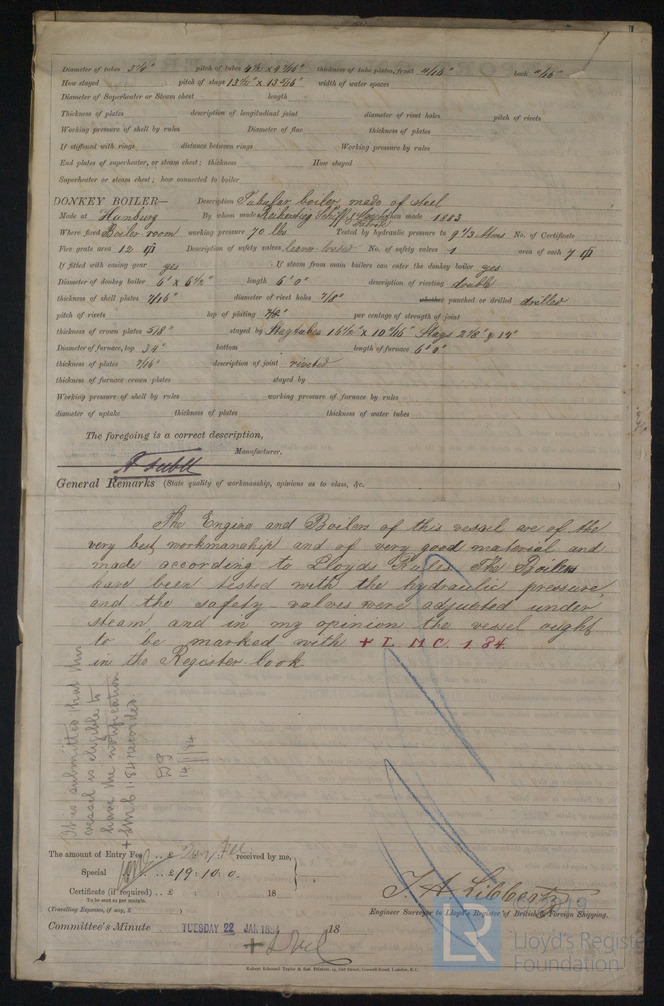 Diameter of tubes 3¼" pitch of tubes thickness of tube plates, front 11/16" back 11/16"
How stayed pitch of stays width of water spaces
Diameter of Superheater or Steam chest length
Thickness of plates description of longitudinal joint diameter of rivet holes pitch of rivets
Working pressure of shell by rules Diameter of flue thickness of plates
If stiffened with rings distance between rings Working pressure by rules
End plates of superheater, or steam chest; thickness How stayed
Superheater or steam chest; how connected to boiler
DONKEY BOILER— Description Tubular boiler made of steel
Made at Hamburg By whom made when made 1883
Where fixed Boiler room working pressure 70 lbs Tested by hydraulic pressure to 9⅓ Atms No. of Certificate
Fire grate area 12 Description of safety valves No. of safety valves 1 area of each 7
If fitted with easing gear yes If steam from main boilers can enter the donkey boiler yes
Diameter of donkey boiler 6' x 6½" length 6' 0" description of riveting double
thickness of shell plates 7/16" diameter of rivet holes 7/8" whether punched or drilled drilled
pitch of rivets lap of plating per centage of strength of joint
thickness of crown plates 5/8" stayed by Staytubes Stays
Diameter of furnace, top 34" bottom length of furnace 6' 0"
thickness of plates 7/16" description of joint riveted
thickness of furnace crown plates stayed by
Working pressure of shell by rules working pressure of furnace by rules
diameter of uptake thickness of plates thickness of water tubes
The foregoing is a correct description,
Manufacturer.
General Remarks (State quality of workmanship, opinions as to class, &c.
The Engine and Boilers of this vessel are of the
very best workmanship and of very good material and
made according to Lloyds Rules The Boilers
have been tested with the hydraulic pressure,
and the safety-valves were adjusted under
steam, and in my opinion the vessel ought
to be marked with + L M C. 1 84.
in the Register-book
It is submitted that this
vessel is eligible to
have the notification
+ LMC 1.84 recorded.
The amount of Entry Fee .. £ received by me,
Special .. £ 19 : 10 : 0.
Certificate (if required) .. £ 18
To be sent as per margin.
(Travelling Expenses, if any, £ )
Committee's Minute TUESDAY 22 JAN 1884 18
Engineer Surveyor to Lloyd's Register of British & Foreign Shipping.
Robert Edmund Taylor & Son, Printers, 19, Old Street, Goswell Road, London, E.C.
LR
2019
Lloyd's Register
Foundation